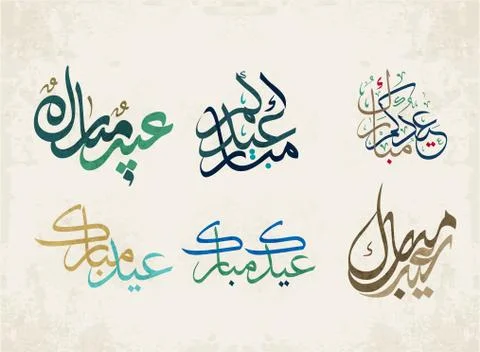 عيدكم مبارك
عيدكم مبارك
عيدٌ مباركٌ
عيد مبارك
عيدكم مبارك
عيد مبارك